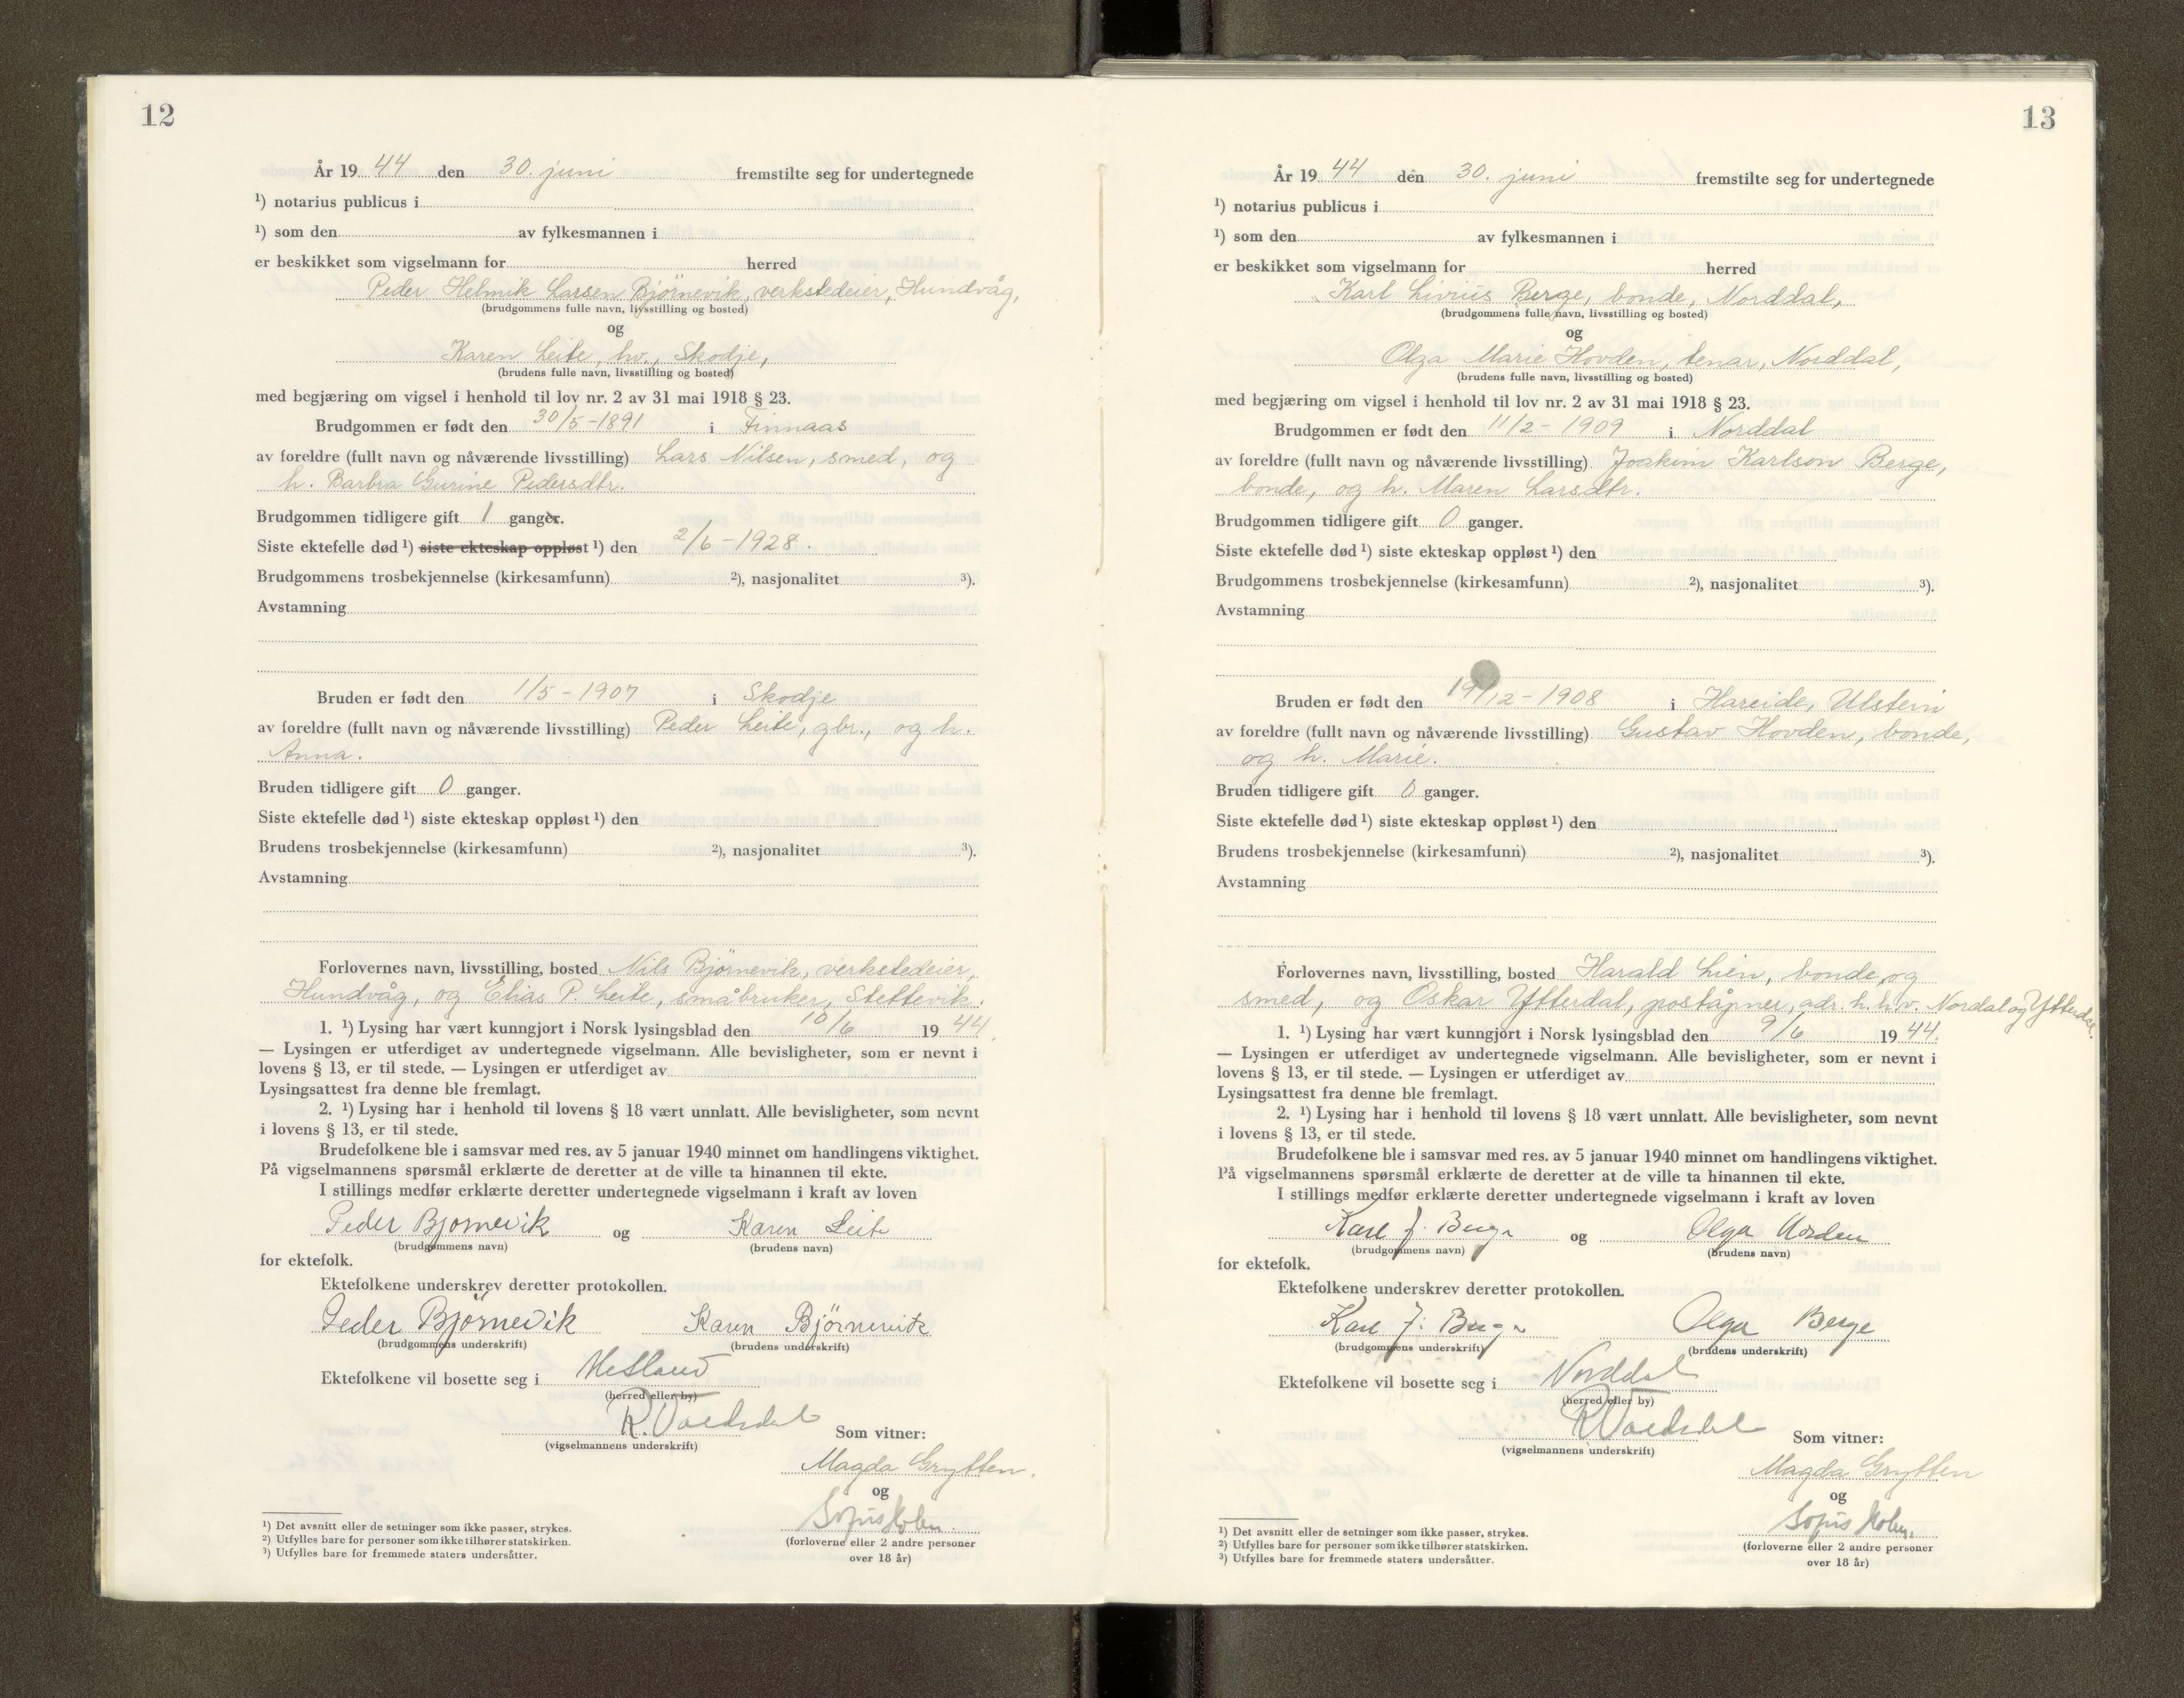 12
År 19 44 den 30. juni fremstilte seg for undertegnede
¹) notarius publicus i
¹) som den av fylkesmannen i
er beskikket som vigselmann for herred
Peder Helmik Larsen Björnevik, verkstedeier, Hundvåg,
(brudgommens fulle navn, livsstilling og bosted)
og
Karen Leite, hv., Skodje,
(brudens fulle navn, livsstilling og bosted)
med begjæring om vigsel i henhold til lov nr. 2 av 31 mai 1918 § 23.
Brudgommen er født den 30/5-1891 i Finnaas
av foreldre (fullt navn og nåværende livsstilling) Lars Nilsen, smed, og
h. Barbra Gurine Pedersdtr.
Brudgommen tidligere gift 1 ganger.
Siste ektefelle død ¹) siste ekteskap oppløst ¹) den 2/6-1928.
Brudgommens trosbekjennelse (kirkesamfunn) ²), nasjonalitet ³).
Avstamning
Bruden er født den 1/5-1907 i Skodje
av foreldre (fullt navn og nåværende livsstilling) Peder Leite, gbr., og h.
Anna.
Bruden tidligere gift 0 ganger.
Siste ektefelle død ¹) siste ekteskap oppløst ¹) den
Brudens trosbekjennelse (kirkesamfunn) ²), nasjonalitet ³).
Avstamning
Forlovernes navn, livsstilling, bosted Nils Björnevik, verkstedeier,
Hundvåg, og Elias P. Leite, småbruker, Stettevik.
1. ¹) Lysing har vært kunngjort i Norsk lysingsblad den 10/6 19 44
— Lysingen er utferdiget av undertegnede vigselmann. Alle bevisligheter, som er nevnt i
lovens § 13, er til stede. — Lysingen er utferdiget av
Lysingsattest fra denne ble fremlagt.
2. ¹) Lysing har i henhold til lovens § 18 vært unnlatt. Alle bevisligheter, som nevnt
i lovens § 13, er til stede.
Brudefolkene ble i samsvar med res. av 5 januar 1940 minnet om handlingens viktighet.
På vigselmannens spørsmål erklærte de deretter at de ville ta hinannen til ekte.
I stillings medfør erklærte deretter undertegnede vigselmann i kraft av loven
Peder Bjørnevik og Karen Leite
(brudgommens navn) (brudens navn)
for ektefolk.
Ektefolkene underskrev deretter protokollen.
Peder Björnevik Karen Björnevik
(brudgommens underskrift) (brudens underskrift)
Ektefolkene vil bosette seg i Hetland
(herred eller by)
R. Vaardal
(vigselmannens underskrift)
Som vitner:
Magda Grytten.
og
Sofus Holm.
(forloverne eller 2 andre personer
over 18 år)
¹) Det avsnitt eller de setninger som ikke passer, strykes.
²) Utfylles bare for personer som ikke tilhører statskirken.
³) Utfylles bare for fremmede staters undersåtter.
13
År 19 44 den 30. juni fremstilte seg for undertegnede
¹) notarius publicus i
¹) som den av fylkesmannen i
er beskikket som vigselmann for herred
Karl Livius Berge, bonde, Norddal,
(brudgommens fulle navn, livsstilling og bosted)
og
Olga Marie Hovden, tenar, Norddal,
(brudens fulle navn, livsstilling og bosted)
med begjæring om vigsel i henhold til lov nr. 2 av 31 mai 1918 § 23.
Brudgommen er født den 11/2-1909 i Norddal
av foreldre (fullt navn og nåværende livsstilling) Joakim Karlson Berge,
bonde, og h. Maren Larsdtr.
Brudgommen tidligere gift 0 ganger.
Siste ektefelle død ¹) siste ekteskap oppløst ¹) den
Brudgommens trosbekjennelse (kirkesamfunn) ²), nasjonalitet ³).
Avstamning
Bruden er født den 19/12-1908 i Hareide, Ulstein
av foreldre (fullt navn og nåværende livsstilling) Gustav Hovden, bonde,
og h. Marie.
Bruden tidligere gift 0 ganger.
Siste ektefelle død ¹) siste ekteskap oppløst ¹) den
Brudens trosbekjennelse (kirkesamfunn) ²), nasjonalitet ³).
Avstamning
Forlovernes navn, livsstilling, bosted Harald Lien, bonde og
smed, og Oskar Ytterdal, poståpner, adr. h.h.v. Nordal og Ytterdal.
1. ¹) Lysing har vært kunngjort i Norsk lysingsblad den 9/6 19 44.
— Lysingen er utferdiget av undertegnede vigselmann. Alle bevisligheter, som er nevnt i
lovens § 13, er til stede. — Lysingen er utferdiget av
Lysingsattest fra denne ble fremlagt.
2. ¹) Lysing har i henhold til lovens § 18 vært unnlatt. Alle bevisligheter, som nevnt
i lovens § 13, er til stede.
Brudefolkene ble i samsvar med res. av 5 januar 1940 minnet om handlingens viktighet.
På vigselmannens spørsmål erklærte de deretter at de ville ta hinannen til ekte.
I stillings medfør erklærte deretter undertegnede vigselmann i kraft av loven
Karl J. Berge og Olga Hovden
(brudgommens navn) (brudens navn)
for ektefolk.
Ektefolkene underskrev deretter protokollen.
Karl J. Berge Olga Berge
(brudgommens underskrift) (brudens underskrift)
Ektefolkene vil bosette seg i Norddal
(herred eller by)
(vigselmannens underskrift)
Som vitner:
Magda Grytten
og
Sofus Holm.
(forloverne eller 2 andre personer
over 18 år)
¹) Det avsnitt eller de setninger som ikke passer, strykes.
²) Utfylles bare for personer som ikke tilhører statskirken.
³) Utfylles bare for fremmede staters undersåtter.